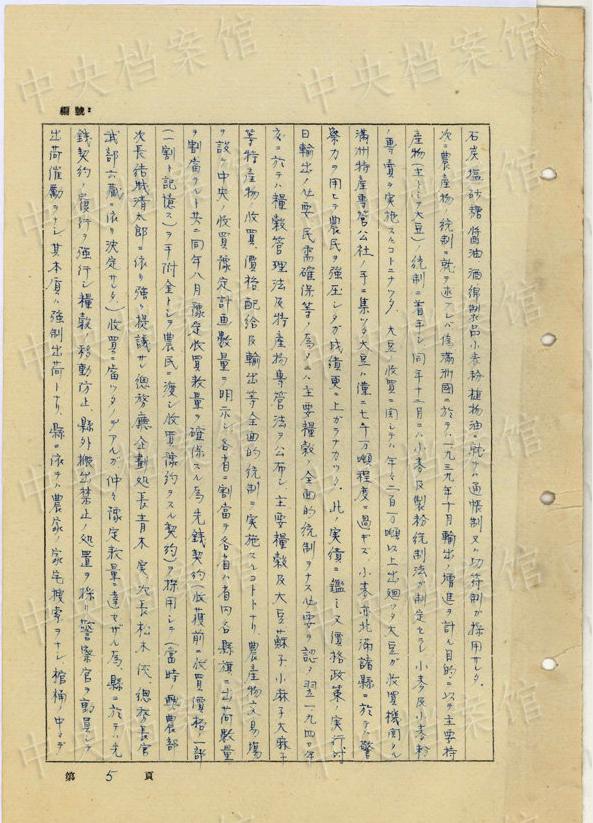 編號：
石炭塩砂糖醤油酒綿製品小麦粉植物油ニ就テハ通帳制又ハ切符制ガ採用サレタ。
次ニ農産物ノ統制ニ就テ述ブレバ偽満洲國ニ於テハ一九三九年十月輸出ノ増進ヲ計ル目的ニ以テ主要特
産物(主トシテ大豆)ノ統制ニ着手シ同年十二月ニハ小麦及製粉統制法ガ制定セラレ小麦及小麦粉
ノ専賣ヲ実施スルコトニナツタ。大豆ノ收買ニ関シテハ年々二百万噸以上出廻ツタ大豆ガ收買機関タル
満洲特産専管公社ノ手ニ集ツタ大豆ハ僅ニ七十万噸程度ニ過ギズ小麦亦北満諸縣ニ於テハ警
察力ヲ用ヒテ農民ヲ強圧シタガ成績更ニ上ガラナカツタ。此ノ実績ニ鑑ミ又價格政策ノ実行対
日輸出ノ必要民需確保等ノ為ニハ主要糧穀ノ全面的統制ヲナス必要ヲ認メ翌一九四〇年
ニ於テハ糧穀管理法及特産物専管法ヲ公布シ主要糧穀及大豆蘇子小麻子大麻子
等特産物ノ收買、價格配給及輸出等全面的統制ヲ実施スルコトトナリ農産物交易場
ヲ設ケ中央ノ收買豫定計画数量ニ明示シ各省ニ割當テ各省ハ省内各縣旗ニ出荷数量
ヲ割當ツルト共ニ同年八月豫定收買数量ヲ確保スル為先錢契約(收穫前ニ收買價格ノ一部
(一割ト記憶ス)ヲ手附金トシテ農民ニ渡シ收買豫約ヲスル契約)ヲ採用シテ(當時ノ興農部
次長結城清太郎ニ依リ強ク提議サレ總務廳企劃処長青木実次長松木俠、總務長官
武部六蔵ニ依リ決定サレタ)收買ニ當ツタノデアルガ仲々豫定数量ニ達セザル為、縣ニ於テハ先
錢契約ノ履行ヲ強行シ糧穀ノ移動防止、縣外搬出禁止ノ処置ヲ採リ警察官ヲ動員シテ
出荷催勵ヲナシ其本質ハ強制出荷トナリ、縣ニ依テハ農家ノ家宅捜索ヲナシ棺桶ノ中マデ
第 5 頁
中央档案馆